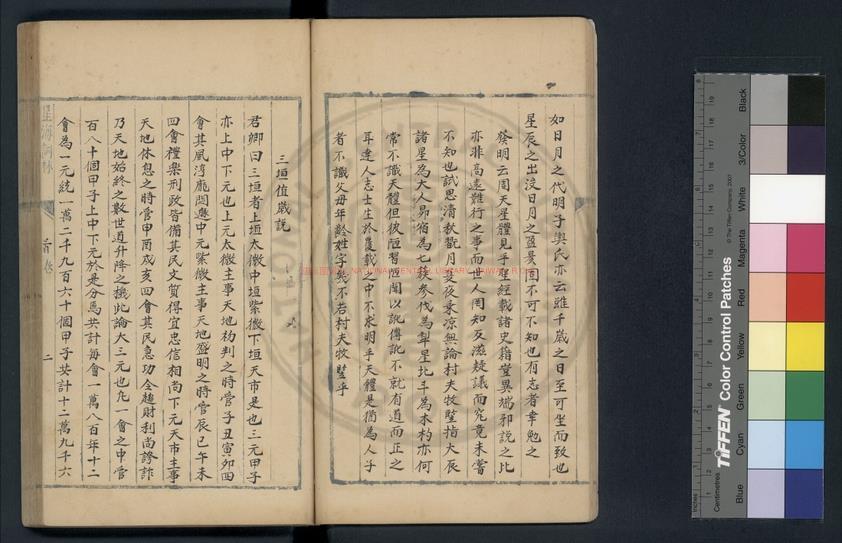 如日月之代明子輿氏亦云雖千歲之日至可坐而致也
星辰之出沒日月之盈昃固不可不知也有志者幸勉之
癸明云周天星體見乎聖經載諸史籍豈異端邪說之比
亦非高遠難行之事而世人罔知反滋疑議而究竟未嘗
不知也試思清秋翫月夏夜乘凉無論村夫牧豎指大辰
諸星為大人昴宿為七簇參伐為犁星北斗為木杓亦何
常不識天體但彼陋習恒聞以訛傳訛不就有道而正之
耳達人志士生於覆載之中不求明乎天體是猶為人子
者不識父母年齡姓字幾不若村夫牧豎乎
三垣值歲說
君卿曰三垣者上垣太微中垣紫微下垣天市是也三元甲子
亦上中下元也上元太微主事天地初判之時管子丑寅卯四
會其風淳龐悶遯中元紫微主事天地盛明之時管辰巳午未
四會禮樂刑政皆備其民文質得宜忠信相尚下元天市主事
天地休息之時管申酉戌亥四會其民急功全趨財利尚誇詐
乃天地始終之數世道升降之機此論大三元也凡一會之中管
百八十個甲子上中下元於是分焉共計每會一萬八百年十二
會為一元統一萬二千九百六十個甲子共計十二萬九千六
星海詞林
首卷
二
NATIONAL CENTRAL LIBRARY, TAIWAN, R.O.C.
TIFFEN Color Control Patches
© The Tiffen Company, 2007
Centimetres
Inches
Blue
Cyan
Green
Yellow
Red
Magenta
White
3/Color
Black